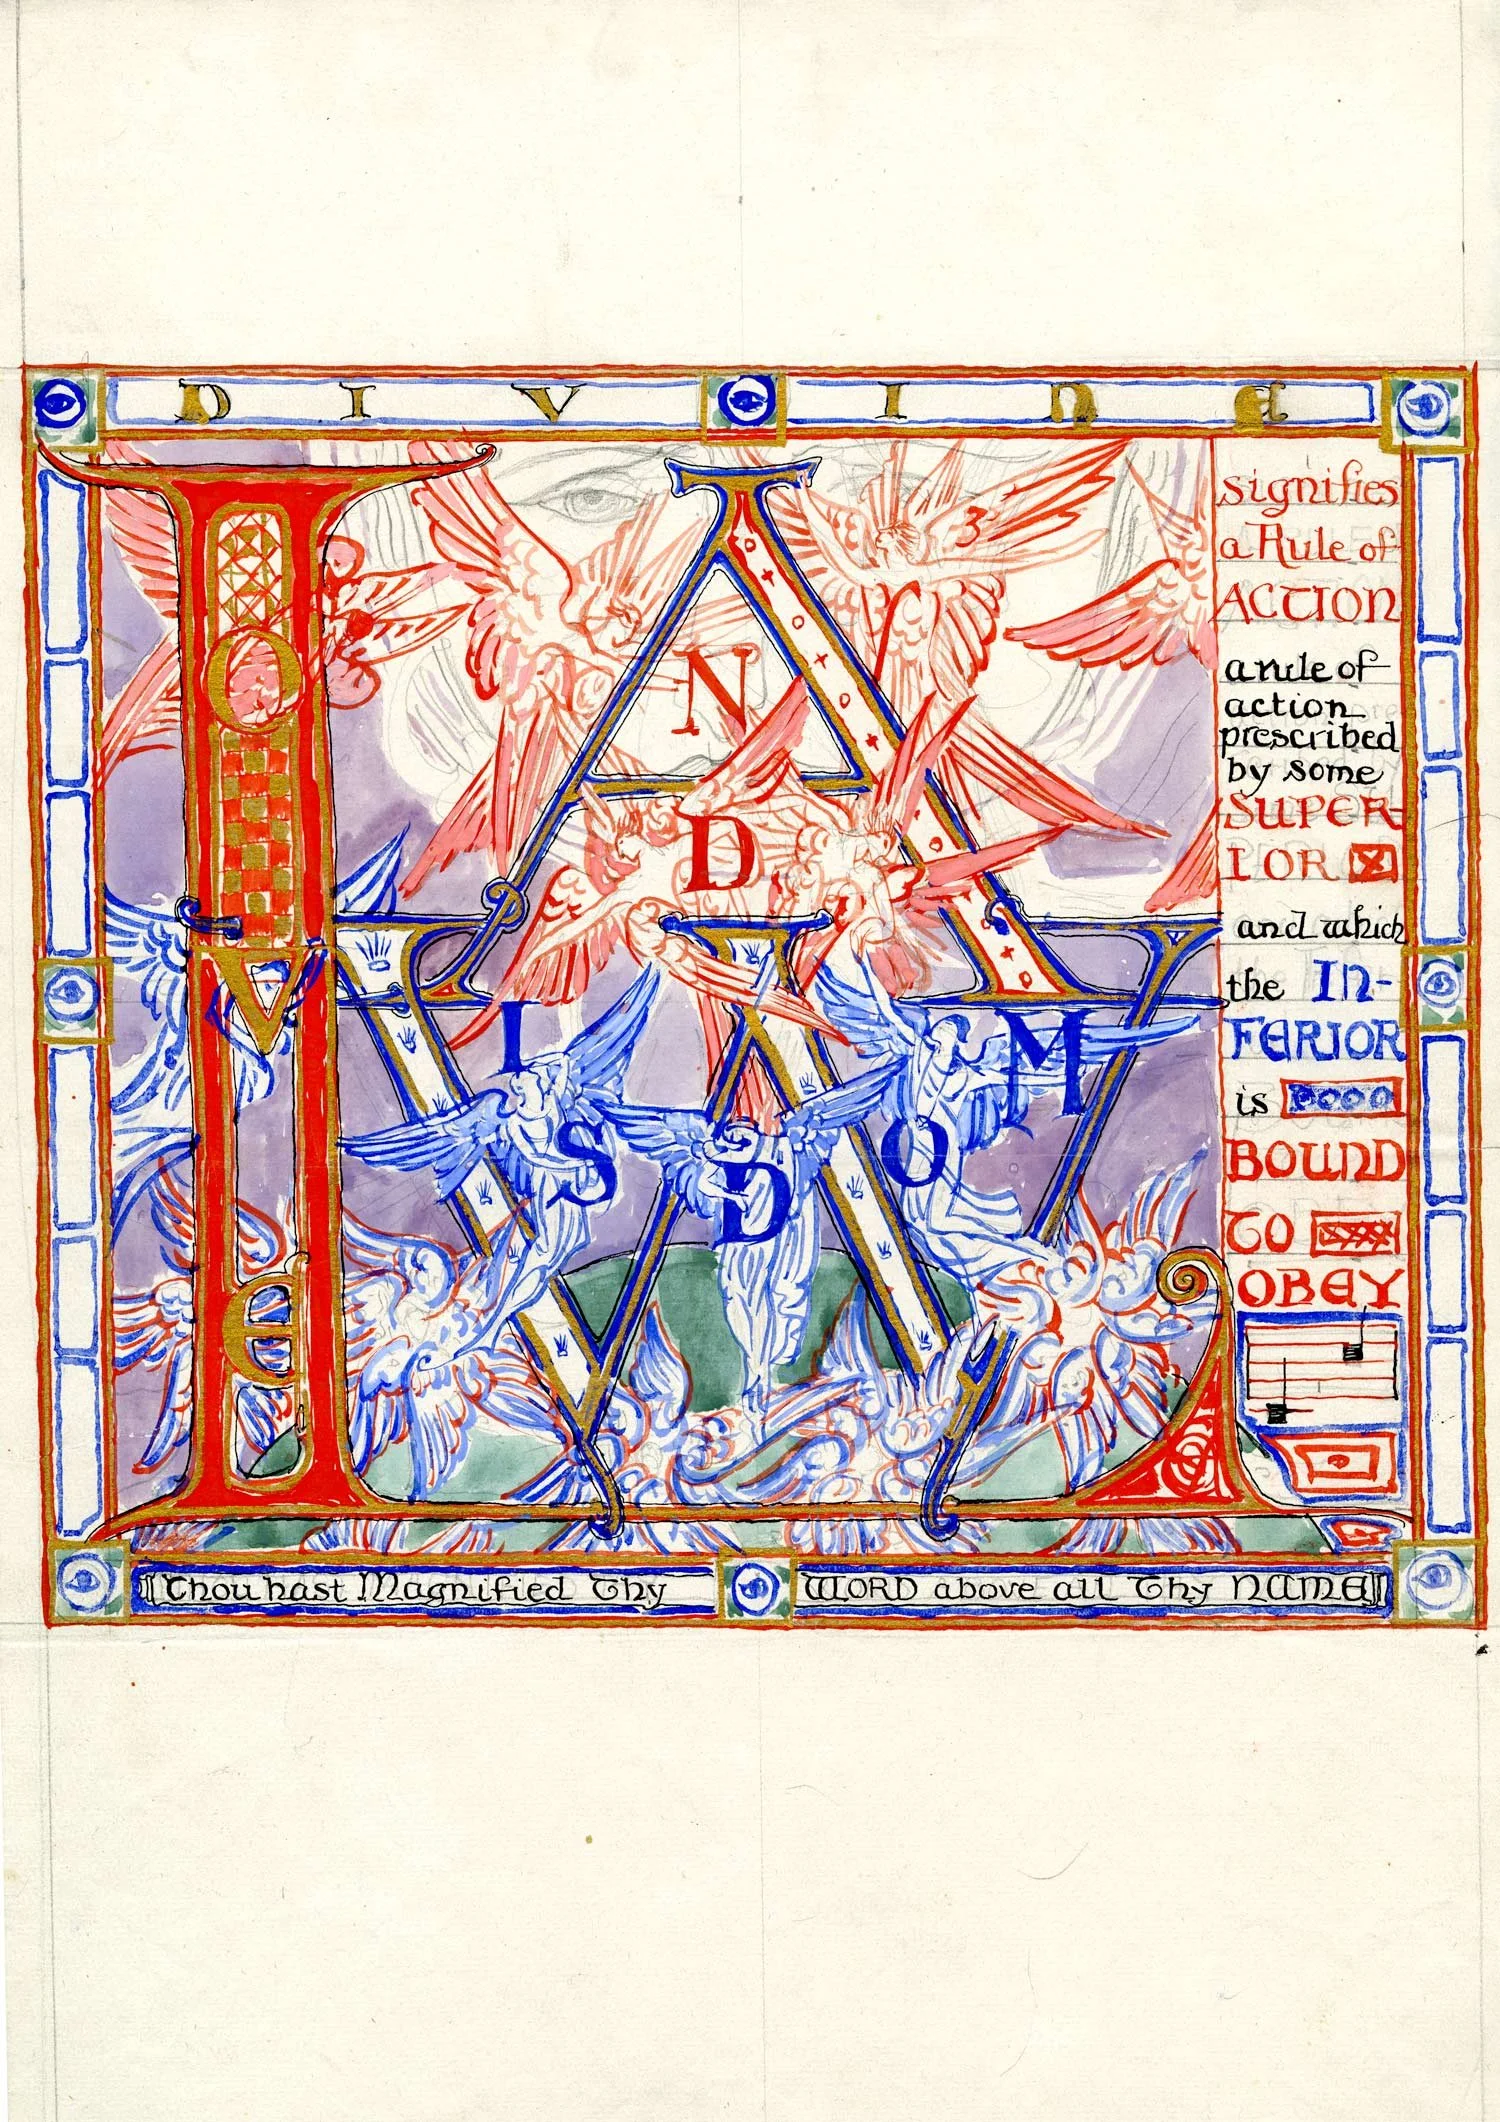 DIVINE
LAW
LOVE
AND
WISDOM
signifies
a Rule of
ACTION
a rule of
action
prescribed
by some
SUPER-
IOR
and which
the IN-
FERIOR
is
BOUND
TO
OBEY
Thou hast Magnified Thy WORD above all Thy NAME